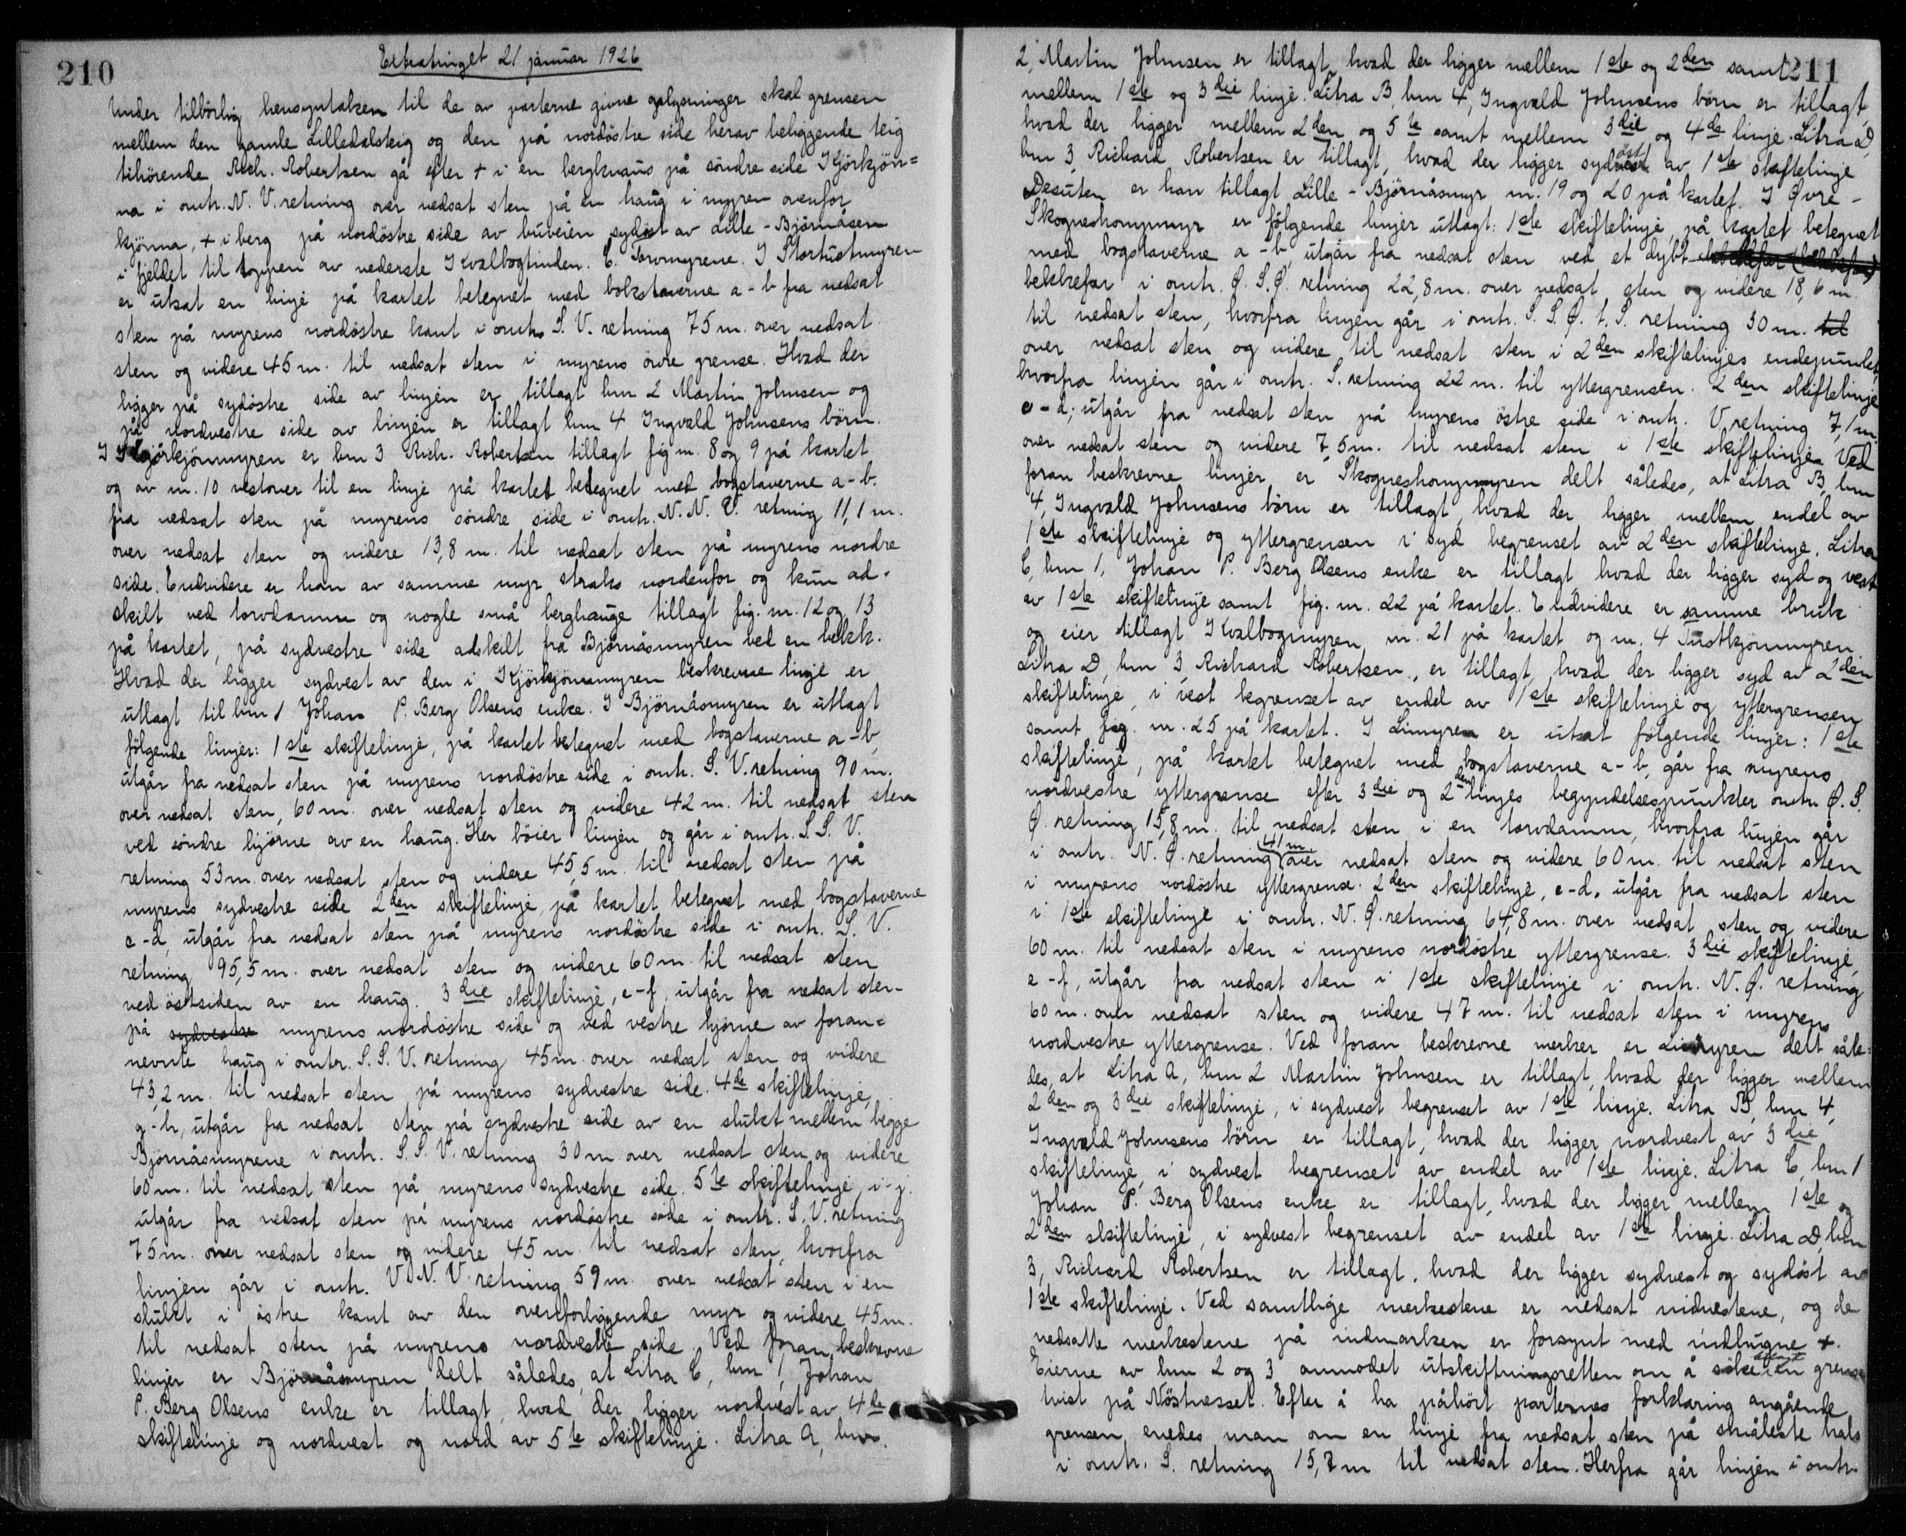 210
Extratinget 21 januar 1926
Under tilbörlig hensyntaken til de av parterne givne oplysninger skal grensen
mellem den gamle Lilledalsteig og den på nordöstre side herav beliggende teig
tilhörende Rich. Robertsen gå efter + i en bergknaus på söndre side Kjörkjön=
na i omtr. N. V. retning over nedsat sten på en haug i myren ovenfor
kjönna, + i berg på nordöstre side av buveien sydöst av Lille-Björnåsen
i fjeldet til toppen av nederste Kvalbogtinden. C. Torvmyrene. I Stortustmyren
er utsat en linje på kartet betegnet med bokstaverne a-b fra nedsat
sten på myrens nordöstre kant i omtr. S. V. retning 75 m. over nedsat
sten og videre 45 m. til nedsat sten i myrens övre grense. Hvad der
ligger på sydöstre side av linjen er tillagt bnr 2 Martin Johnsen og
på nordvestre side av linjen er tillagt bnr 4 Ingvald Johnsens börn.
I Kjörkjönmyren er bnr 3 Rich. Robertsen tillagt fig nr. 8 og 9 på kartet
og av nr. 10 vestover til en linje på kartet betegnet med bogstaverne a-b.
fra nedsat sten på myrens söndre side i omtr. N. N. V. retning 11,1 m.
over nedsat sten og videre 13,8 m. til nedsat sten på myrens nordre
side. Endvidere er han av samme myr straks nordenfor og kun ad-
skilt ved torvdamm og nogle små berghauge tillagt fig. nr. 12 og 13
på kartet, på sydvestre side adskilt fra Björnåsmyren ved en bekk.
Hvad der ligger sydvest av den i Kjörkjönmyren beskrevne linje er
utlagt til bnr 1 Johan P. Berg Olsens enke. I Björnåsmyren er utlagt
fölgende linjer: 1ste skiftelinje, på kartet betegnet med bogstaverne a-b,
utgår fra nedsat sten på myrens nordöstre side i omtr. S. V. retning 90 m.
over nedsat sten, 60 m. over nedsat sten og videre 42 m. til nedsat sten
ved söndre hjörne av en haug. Her böier linjen og går i omtr. S. S. V.
retning 53 m. over nedsat sten og videre 45,5 m. til nedsat sten på
myrens sydvestre side. 2den skiftelinje, på kartet betegnet med bogstaverne
c-d, utgår fra nedsat sten på myrens nordöstre side i omtr. S. V.
retning 95,5 m. over nedsat sten og videre 60 m. til nedsat sten
ved östsiden av en haug. 3die skiftelinje, e-f, utgår fra nedsat sten
på sydvestre myrens nordöstre side og ved vestre hjörne av foran=
nevnte haug i omtr. S. S. V. retning 45 m. over nedsat sten og videre
43,2 m. til nedsat sten på myrens sydvestre side. 4de skiftelinje,
g-h, utgår fra nedsat sten på sydvestre side av en slukt mellem begge
Björnåsmyrene i omtr. S. S. V. retning 30 m over nedsat sten og videre
60 m. til nedsat sten på myrens sydvestre side. 5te skiftelinje, i-j.
utgår fra nedsat sten på myrens nordöstre side i omtr. S. V. retning
75 m. over nedsat sten og videre 45 m. til nedsat sten, hvorfra
linjen går i omtr. V. N. V. retning 59 m. over nedsat sten i en
slukt i östre kant av den ovenforliggende myr og videre 45 m.
til nedsat sten på myrens nordvestre side. Ved foran beskrevne
linjer er Björnåsmyren delt således, at Litra C, bnr 1, Johan
P. Berg Olsens enke er tillagt, hvad der ligger nordvest av 4de
skiftelinje og nordvest og nord av 5te skiftelinje. Litra A, bnr.
211
2, Martin Johnsen er tillagt, hvad der ligger mellem 1ste og 2den samt
mellem 1ste og 3die linje. Litra B, bnr 4, Ingvald Johnsens börn er tillagt,
hvad der ligger mellem 2den og 5te samt mellem 3die og 4de linje. Litra D,
bnr 3, Richard Robertsen er tillagt, hvad der ligger sydöst av 1ste skiftelinje
Desuten er han tillagt Lille-Björnåsmyr nr. 19 og 20 på kartet. I Övre-
Skogneshompmyr er fölgende linjer utlagt: 1ste skiftelinje, på kartet betegnet
med bogstaverne a-b, utgår fra nedsat sten ved et dybt
bekkefar i omtr. Ø. S. Ø. retning 22,8 m. over nedsat sten og videre 18,6 m.
til nedsat sten, hvorfra linjen går i omtr. S. S. Ø. t. S. retning 30 m. til
over nedsat sten og videre til nedsat sten i 2den skiftelinjes endepunkt,
hvorfra linjen går i omtr. S. retning 22 m. til yttergrensen. 2den skiftelinje
c-d; utgår fra nedsat sten på myrens östre side i omtr. V. retning 7,1 m.
over nedsat sten og videre 7,5 m. til nedsat sten i 1ste skiftelinje. Ved
foran beskrevne linjer er Skogneshompmyren delt således, at Litra B, bnr
4, Ingvald Johnsens börn er tillagt, hvad der ligger mellem endel av
1ste skiftelinje og yttergrensen i syd begrenset av 2den skiftelinje. Litra
C, bnr 1, Johan P. Berg Olsens enke er tillagt hvad der ligger syd og vest
av 1ste skiftelinje samt fig. nr. 22 på kartet. Endvidere er samme bruk
og eier tillagt Kvalbogmyren nr. 21 på kartet og nr. 4 Tustkjönmyren.
Litra D, bnr 3, Richard Robertsen, er tillagt, hvad der ligger syd av 2den
skiftelinje, i vest begrenset av endel av 1ste skiftelinje og yttergrensen
samt fig. nr. 25 på kartet. I Limyren er utsat fölgende linjer: 1ste
skiftelinje, på kartet betegnet med bogstaverne a-b, går fra myrens
nordvestre yttergrense efter 3die og 2den linjes begyndelsespunkter omtr. Ø. S.
Ø. retning 15,8 m. til nedsat sten i en torvdamm, hvorfra linjen går
i omtr. N. Ø. retning 41 m. over nedsat sten og videre 60 m. til nedsat sten
i myrens nordöstre yttergrense. 2den skiftelinje, c-d, utgår fra nedsat sten
i 1ste skiftelinje i omtr. N. Ø. retning 64,8 m. over nedsat sten og videre
60 m. til nedsat sten i myrens nordöstre yttergrense. 3die skiftelinje,
e-f, utgår fra nedsat sten i 1ste skiftelinje i omtr. N. Ø. retning
60 m. over nedsat sten og videre 47 m. til nedsat sten i myrens
nordvestre yttergrense. Ved foran beskrevne merker er Limyren delt såle=
des, at Litra A, bnr 2 Martin Johnsen er tillagt, hvad der ligger mellem
2den og 3die skiftelinje, i sydvest begrenset av 1ste linje. Litra B, bnr 4,
Ingvald Johnsens börn er tillagt, hvad der ligger nordvest av 3die
skiftelinje, i sydvest begrenset av endel av 1ste linje. Litra C, bnr 1
Johan P. Berg Olsens enke er tillagt, hvad der ligger mellem 1ste og
2den skiftelinje, i sydvest begrenset av endel av 1ste linje. Litra D, bnr
3, Richard Robertsen er tillagt, hvad der ligger sydvest og sydöst av
1ste skiftelinje. Ved samtlige merkestene er nedsat vidnestene, og de
nedsatte merkestene på indmarken er forsynt med indhugne +.
Eierne av bnr 2 og 3 anmodet utskiftningsretten om å söke en grense
tvist på Nöstnesset. Efter å ha påhört parternes forklaring angående
grensen enedes man om en linje fra nedsat sten på smaleste hals
i omtr. S. retning 15,7 m til nedsat sten. Herfra går linjen i omtr.